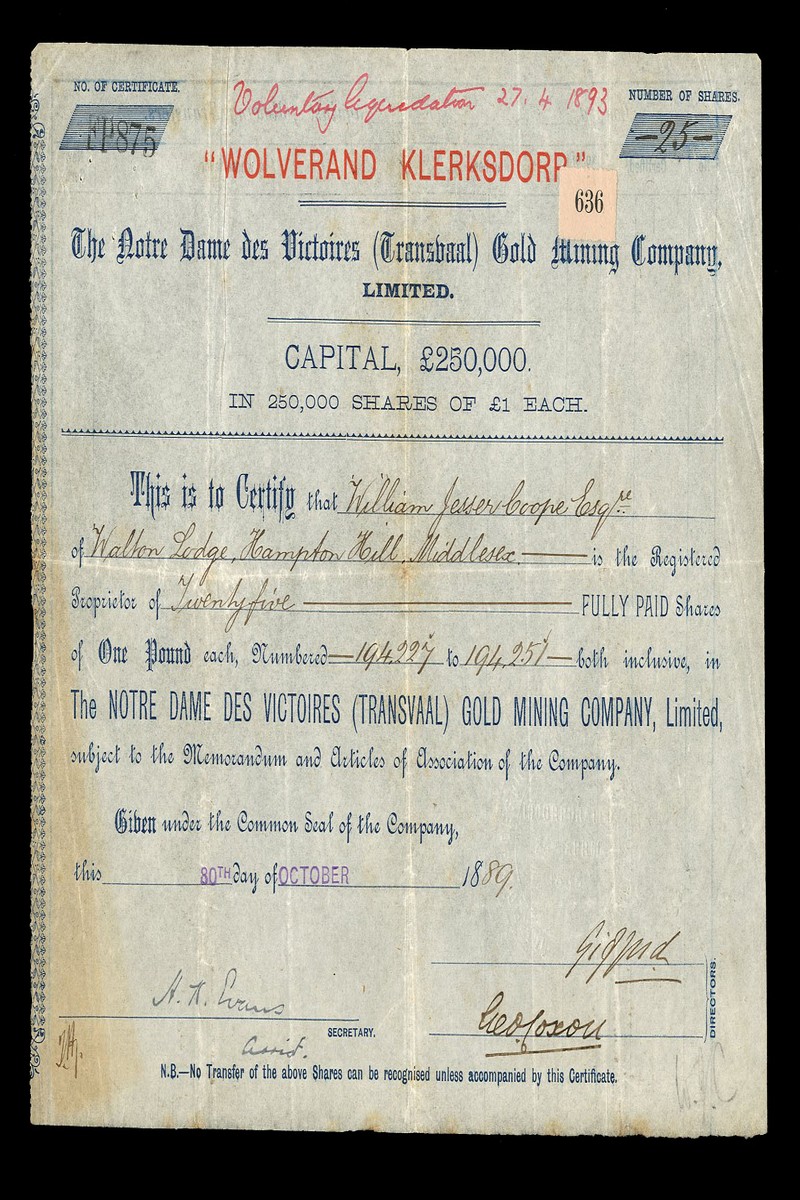 NO. OF CERTIFICATE.
FP875
Voluntary liquidation 27. 4 1893
NUMBER OF SHARES.
—25—
"WOLVERAND KLERKSDORP"
636
The Notre Dame des Victoires (Transvaal) Gold Mining Company,
LIMITED.
CAPITAL, £250,000.
IN 250,000 SHARES OF £1 EACH.
This is to Certify that William Jesser Coope Esqre
of Walton Lodge, Hampton Hill, Middlesex. — is the Registered
Proprietor of Twenty five — FULLY PAID Shares
of One Pound each, Numbered —194,227 to 194,251— both inclusive, in
The NOTRE DAME DES VICTOIRES (TRANSVAAL) GOLD MINING COMPANY, Limited,
subject to the Memorandum and Articles of Association of the Company.
Given under the Common Seal of the Company,
this 30TH day of OCTOBER 1889.
Gifford
H. K. Evans
Geo Coxon
DIRECTORS.
SECRETARY.
N.B.—No Transfer of the above Shares can be recognised unless accompanied by this Certificate.